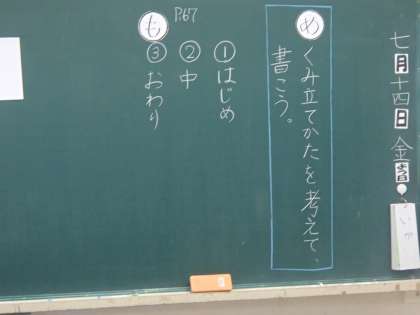 七月十四日金曜
め
くみ立てかたを考えて、
書こう。
P.67
も
①はじめ
②中
③おわり